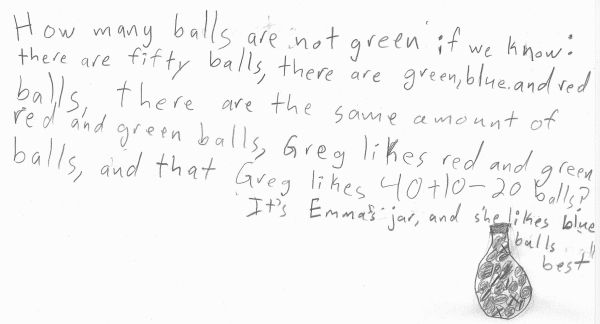 How many balls are not green if we know:
there are fifty balls, there are green, blue and red
balls, there are the same amount of
red and green balls, Greg likes red and green
balls, and that Greg likes 40+10-20 balls?
It's Emma's jar, and she likes blue
balls
best"